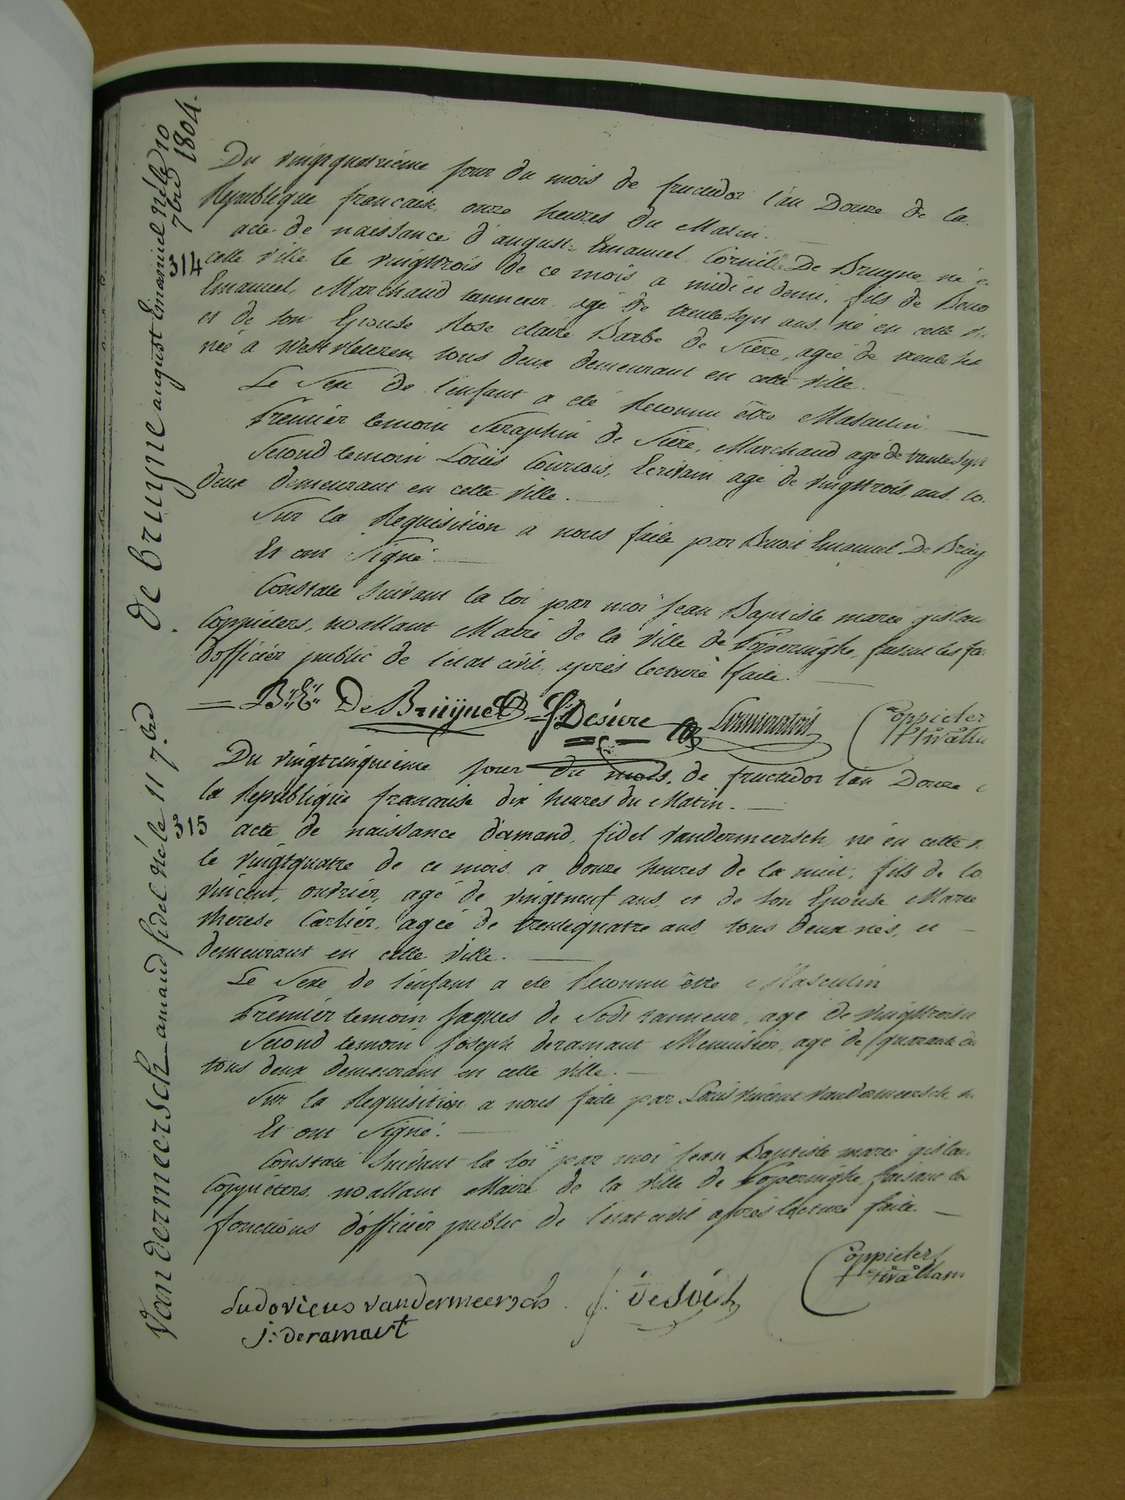 De bruyne august Emanuel né le 10
7bre 1804.
314
Du vingtquatrieme jour du mois de fructidor l'an Douze de la
Republique francaise onze heures du Matin.
acte de naissance d'august Emanuel Corneil De Bruyne, né
cette ville le vingttrois de ce mois a midi et demi, fils de
Emanuel, Marchand tanneur agé de trentesept ans né en cette
et de son Epouse Rose claire Barbe de Siere, agée de trente
née à Westvleteren, tous deux demeurant en cette ville.
Le Sexe de l'enfant a eté Reconnu être Masculin.
Premier temoin Seraphin de Siere, Marchand agé de trentesept
Second temoin Louis Courtois, Ecrivain agé de vingttrois ans
deux demeurant en cette ville.
Sur la Requisition a nous faite par Benoit Emanuel De Bruy
Et ont Signé
Constaté Suivant la loi par moi Jean Baptiste marie gislai
Coppieters, wallant Maire de la ville de Poperinghe, faisant les fo
d'officier public de l'etat civil, après lecture faite.
Br. Er. De Bruijne S. Desiere Coppieters
Vandermeersch amand fidel né le 11 7bre
315
Du vingtcinquieme jour du mois de fructidor l'an Douze
la Republique francaise dix heures du Matin.
acte de naissance d'amand, fidel vandermeersch, né en cette
le vingtquatre de ce mois a douze heures de la nuit, fils de
vincent, ouvrier, agé de vingtneuf ans, et de son Epouse Marie
therese Carlier, agée de trentequatre ans, tous deux nés, et
demeurant en cette ville.
Le Sexe de l'enfant a eté Reconnu être Masculin
Premier temoin Jaques de tanneur, agé de vingttrois
Second temoin Joseph deramaut Menuisier, agé de quarante
tous deux demeurant en cette ville.
Sur la Requisition a nous faite par Louis vincent vandermeersch
Et ont Signé.
Constaté Suivant la loi par moi Jean Baptiste marie gislai
Coppieters, wallant Maire de la ville de Poperinghe, faisant les
fonctions d'officier public de l'etat civil après lecture faite.
Coppieters
Ludovicus vandermeersch
j: deramaut